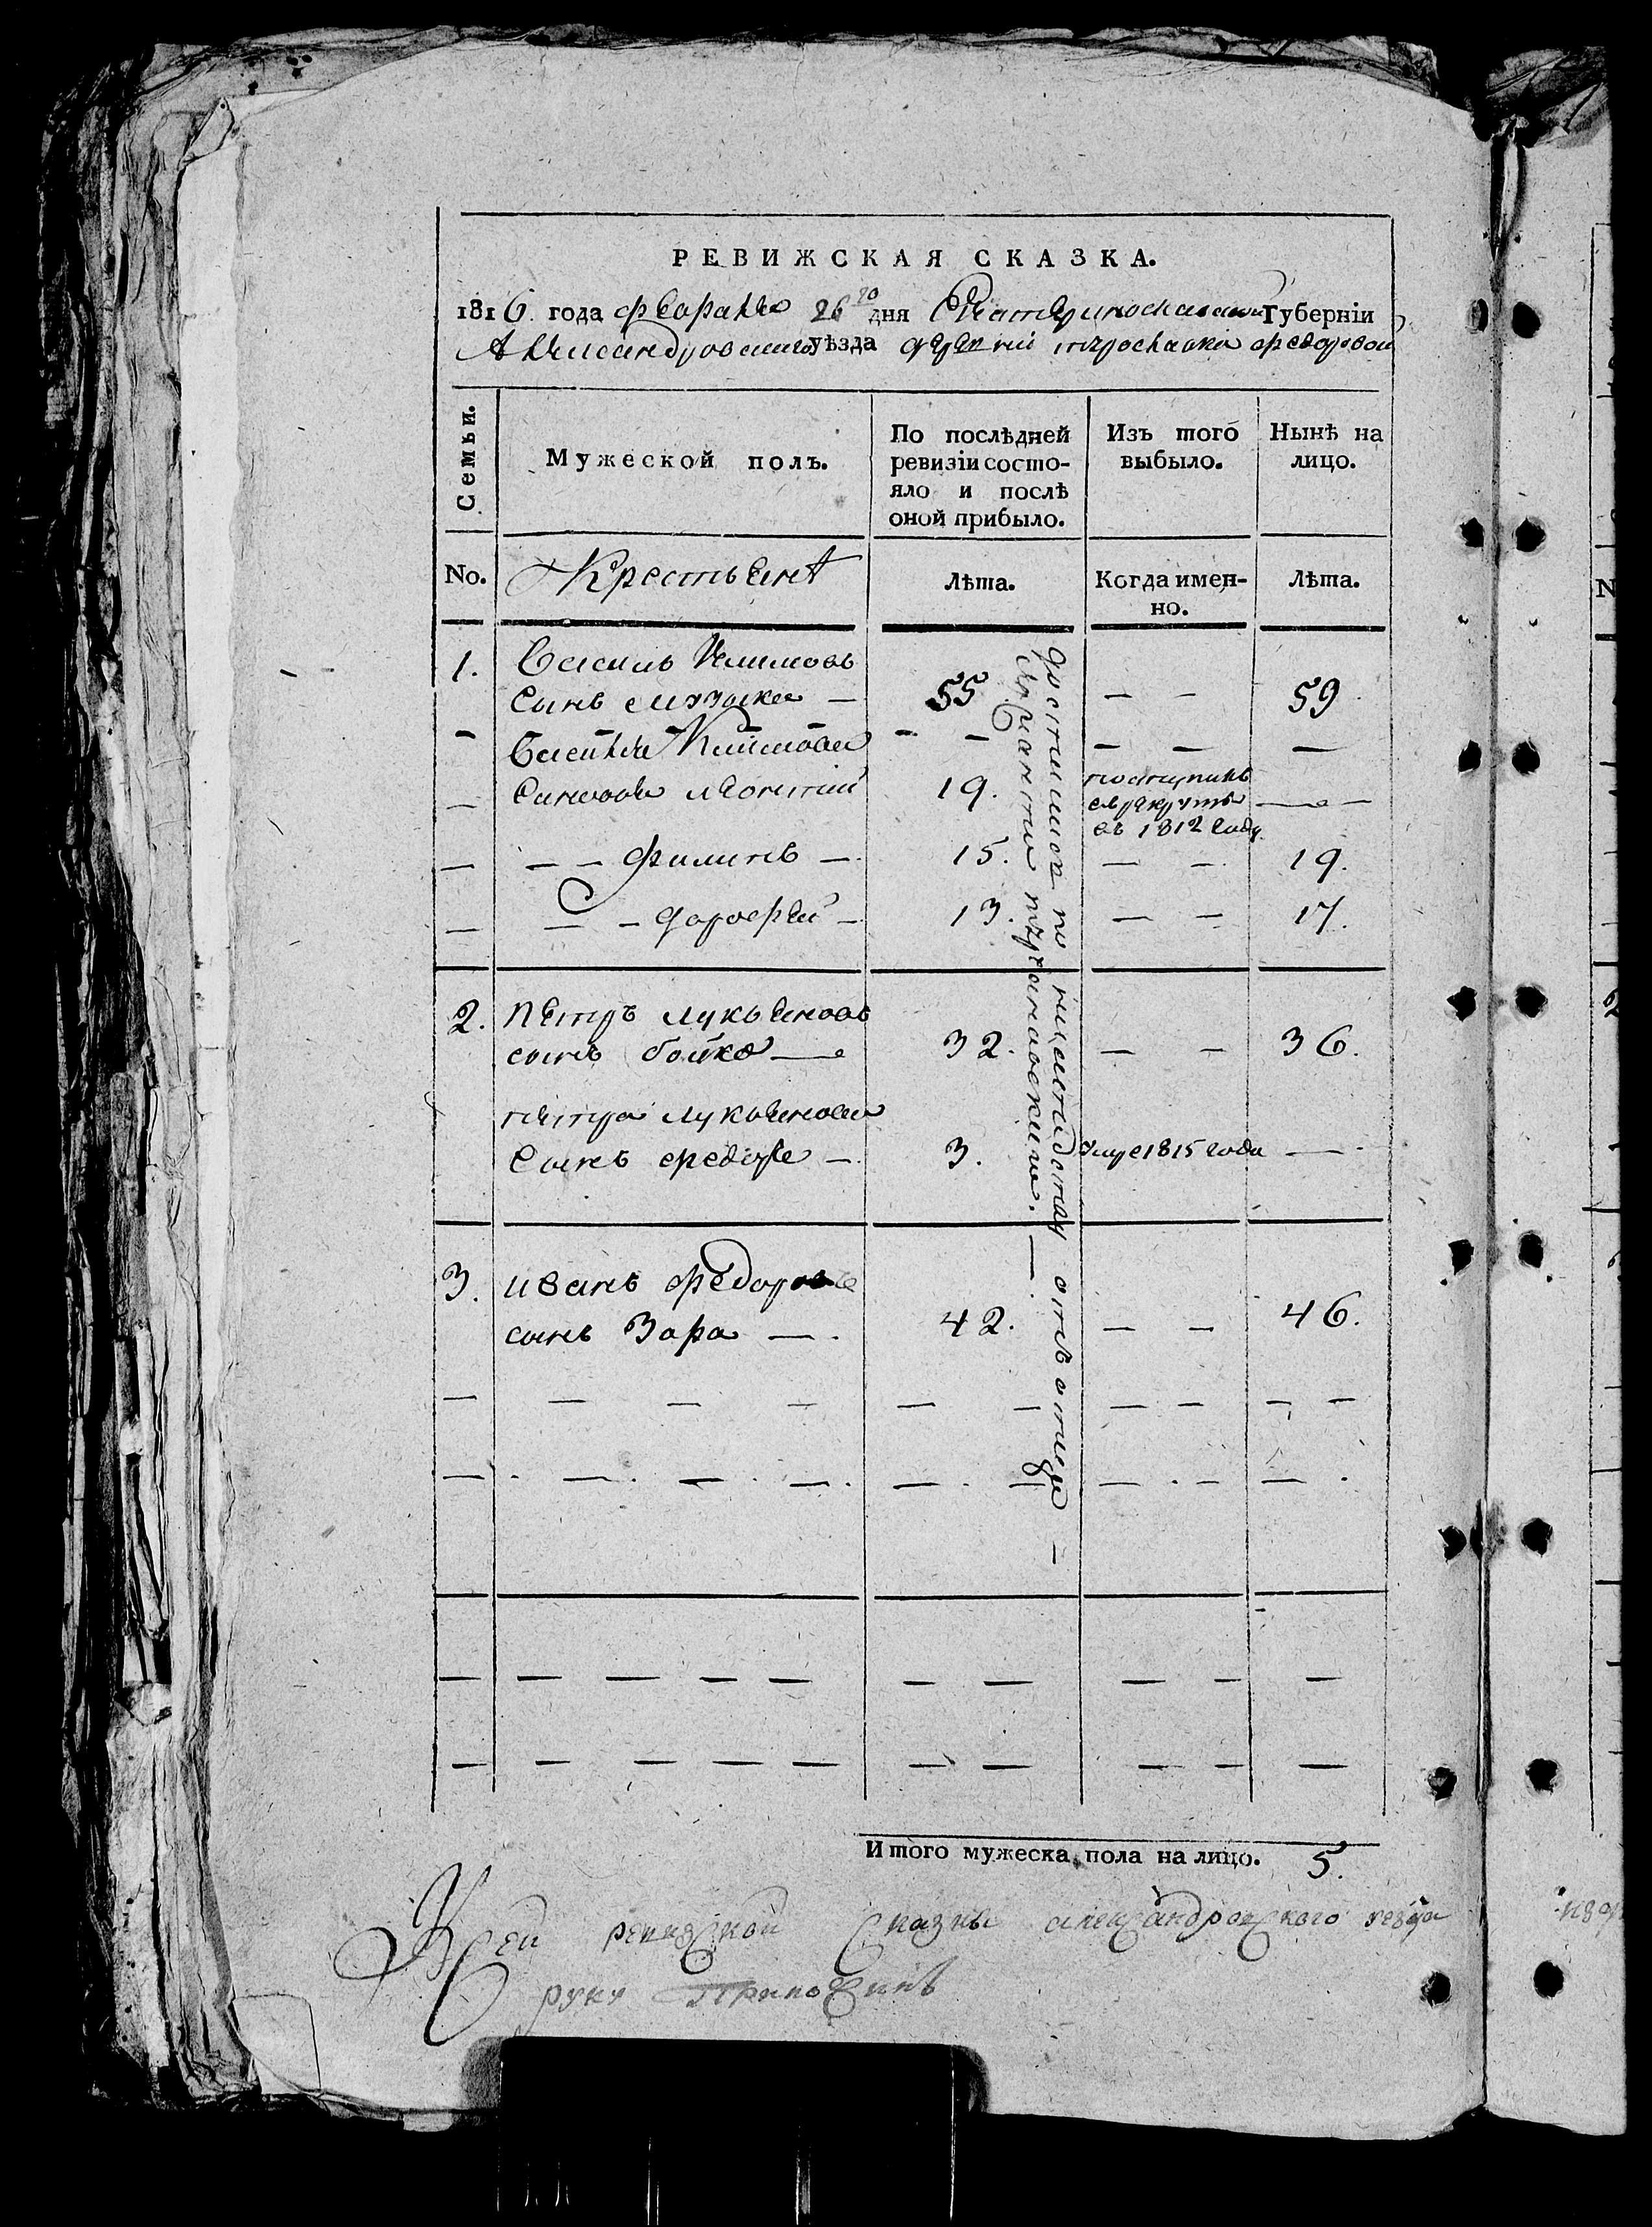 РЕВИЖСКАЯ СКАЗКА.
1816 года февраля 26го дня Екатеринославской Губерніи
Александровскаго уѣзда деревни федоровой
Семьи.
Мужеской полъ.
По послѣдней
ревизіи состо-
яло и послѣ
оной прибыло.
Изъ того
выбыло.
Нынѣ на
лицо.
No.
Крестьяне
Лѣта.
Когда имен-
но.
Лѣта.
1. Василь Климовъ
сынъ — 55 — — 59
Василья Климова
сыновья леонтий 19. поступилъ
в рекруты
въ 1812 году — —
— — — филипъ — 15. — — 19.
— — — дорофей — 13. — — 17.
2. Петръ лукьяновъ
сынъ бойко — 32. — — 36.
петра лукьянова
сынъ федоръ — 3. умре 1815 года —
3. иванъ федоровъ
сынъ Зара — 42. — — 46.
Итого мужеска пола на лицо. 5.
К сей ревизской сказки александровского уезда
руку приложилъ